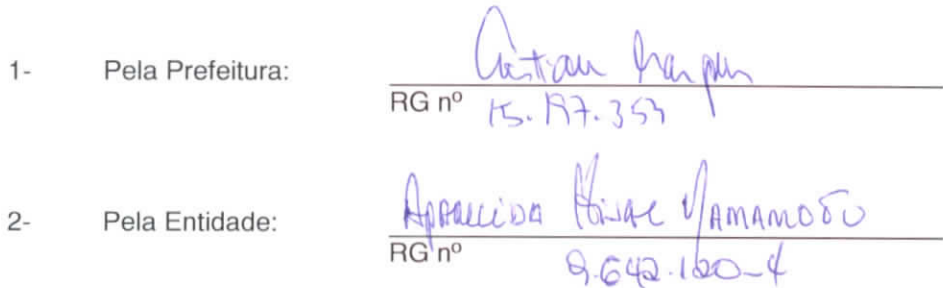 1- Pela Prefeitura: Cristian
RG nº 15.197.353
2- Pela Entidade: Aparecida YAMAMOTO
RG nº 9.642.120-4